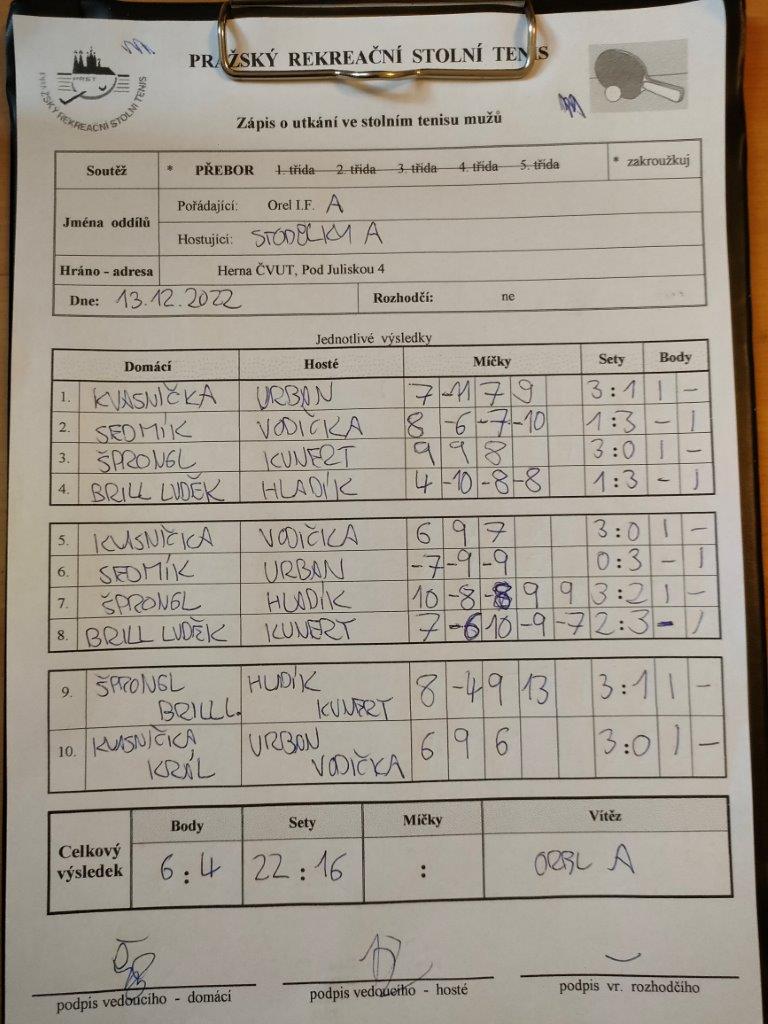 PRAŽSKÝ REKREAČNÍ STOLNÍ TENIS
PRST
PRAŽSKÝ REKREAČNÍ STOLNÍ TENIS
Zápis o utkání ve stolním tenisu mužů
Soutěž * PŘEBOR 1. třída 2. třída 3. třída 4. třída 5. třída * zakroužkuj
Jména oddílů
Pořádající: Orel I.F. A
Hostující: STODŮLKY A
Hráno - adresa Herna ČVUT, Pod Juliskou 4
Dne: 13.12.2022 Rozhodčí: ne
Jednotlivé výsledky
Domácí Hosté Míčky Sety Body
1. KVASNIČKA URBAN 7 -11 7 9 3:1 1 -
2. SEDMÍK VODIČKA 8 -6 -7 -10 1:3 - 1
3. ŠPRONGL KUNERT 9 9 8 3:0 1 -
4. BRILL LUDĚK HLADÍK 4 -10 -8 -8 1:3 - 1
5. KVASNIČKA VODIČKA 6 9 7 3:0 1 -
6. SEDMÍK URBAN -7 -9 -9 0:3 - 1
7. ŠPRONGL HLADÍK 10 -8 -8 9 9 3:2 1 -
8. BRILL LUDĚK KUNERT 7 -6 10 -9 -7 2:3 - 1
9. ŠPRONGL HLADÍK 8 -4 9 13 3:1 1 -
BRILL L. KUNERT
10. KVASNIČKA URBAN 6 9 6 3:0 1 -
KRÁL VODIČKA
Celkový výsledek
Body Sety Míčky Vítěz
6:4 22:16 : OREL A
podpis vedoucího - domácí podpis vedoucího - hosté podpis vr. rozhodčího